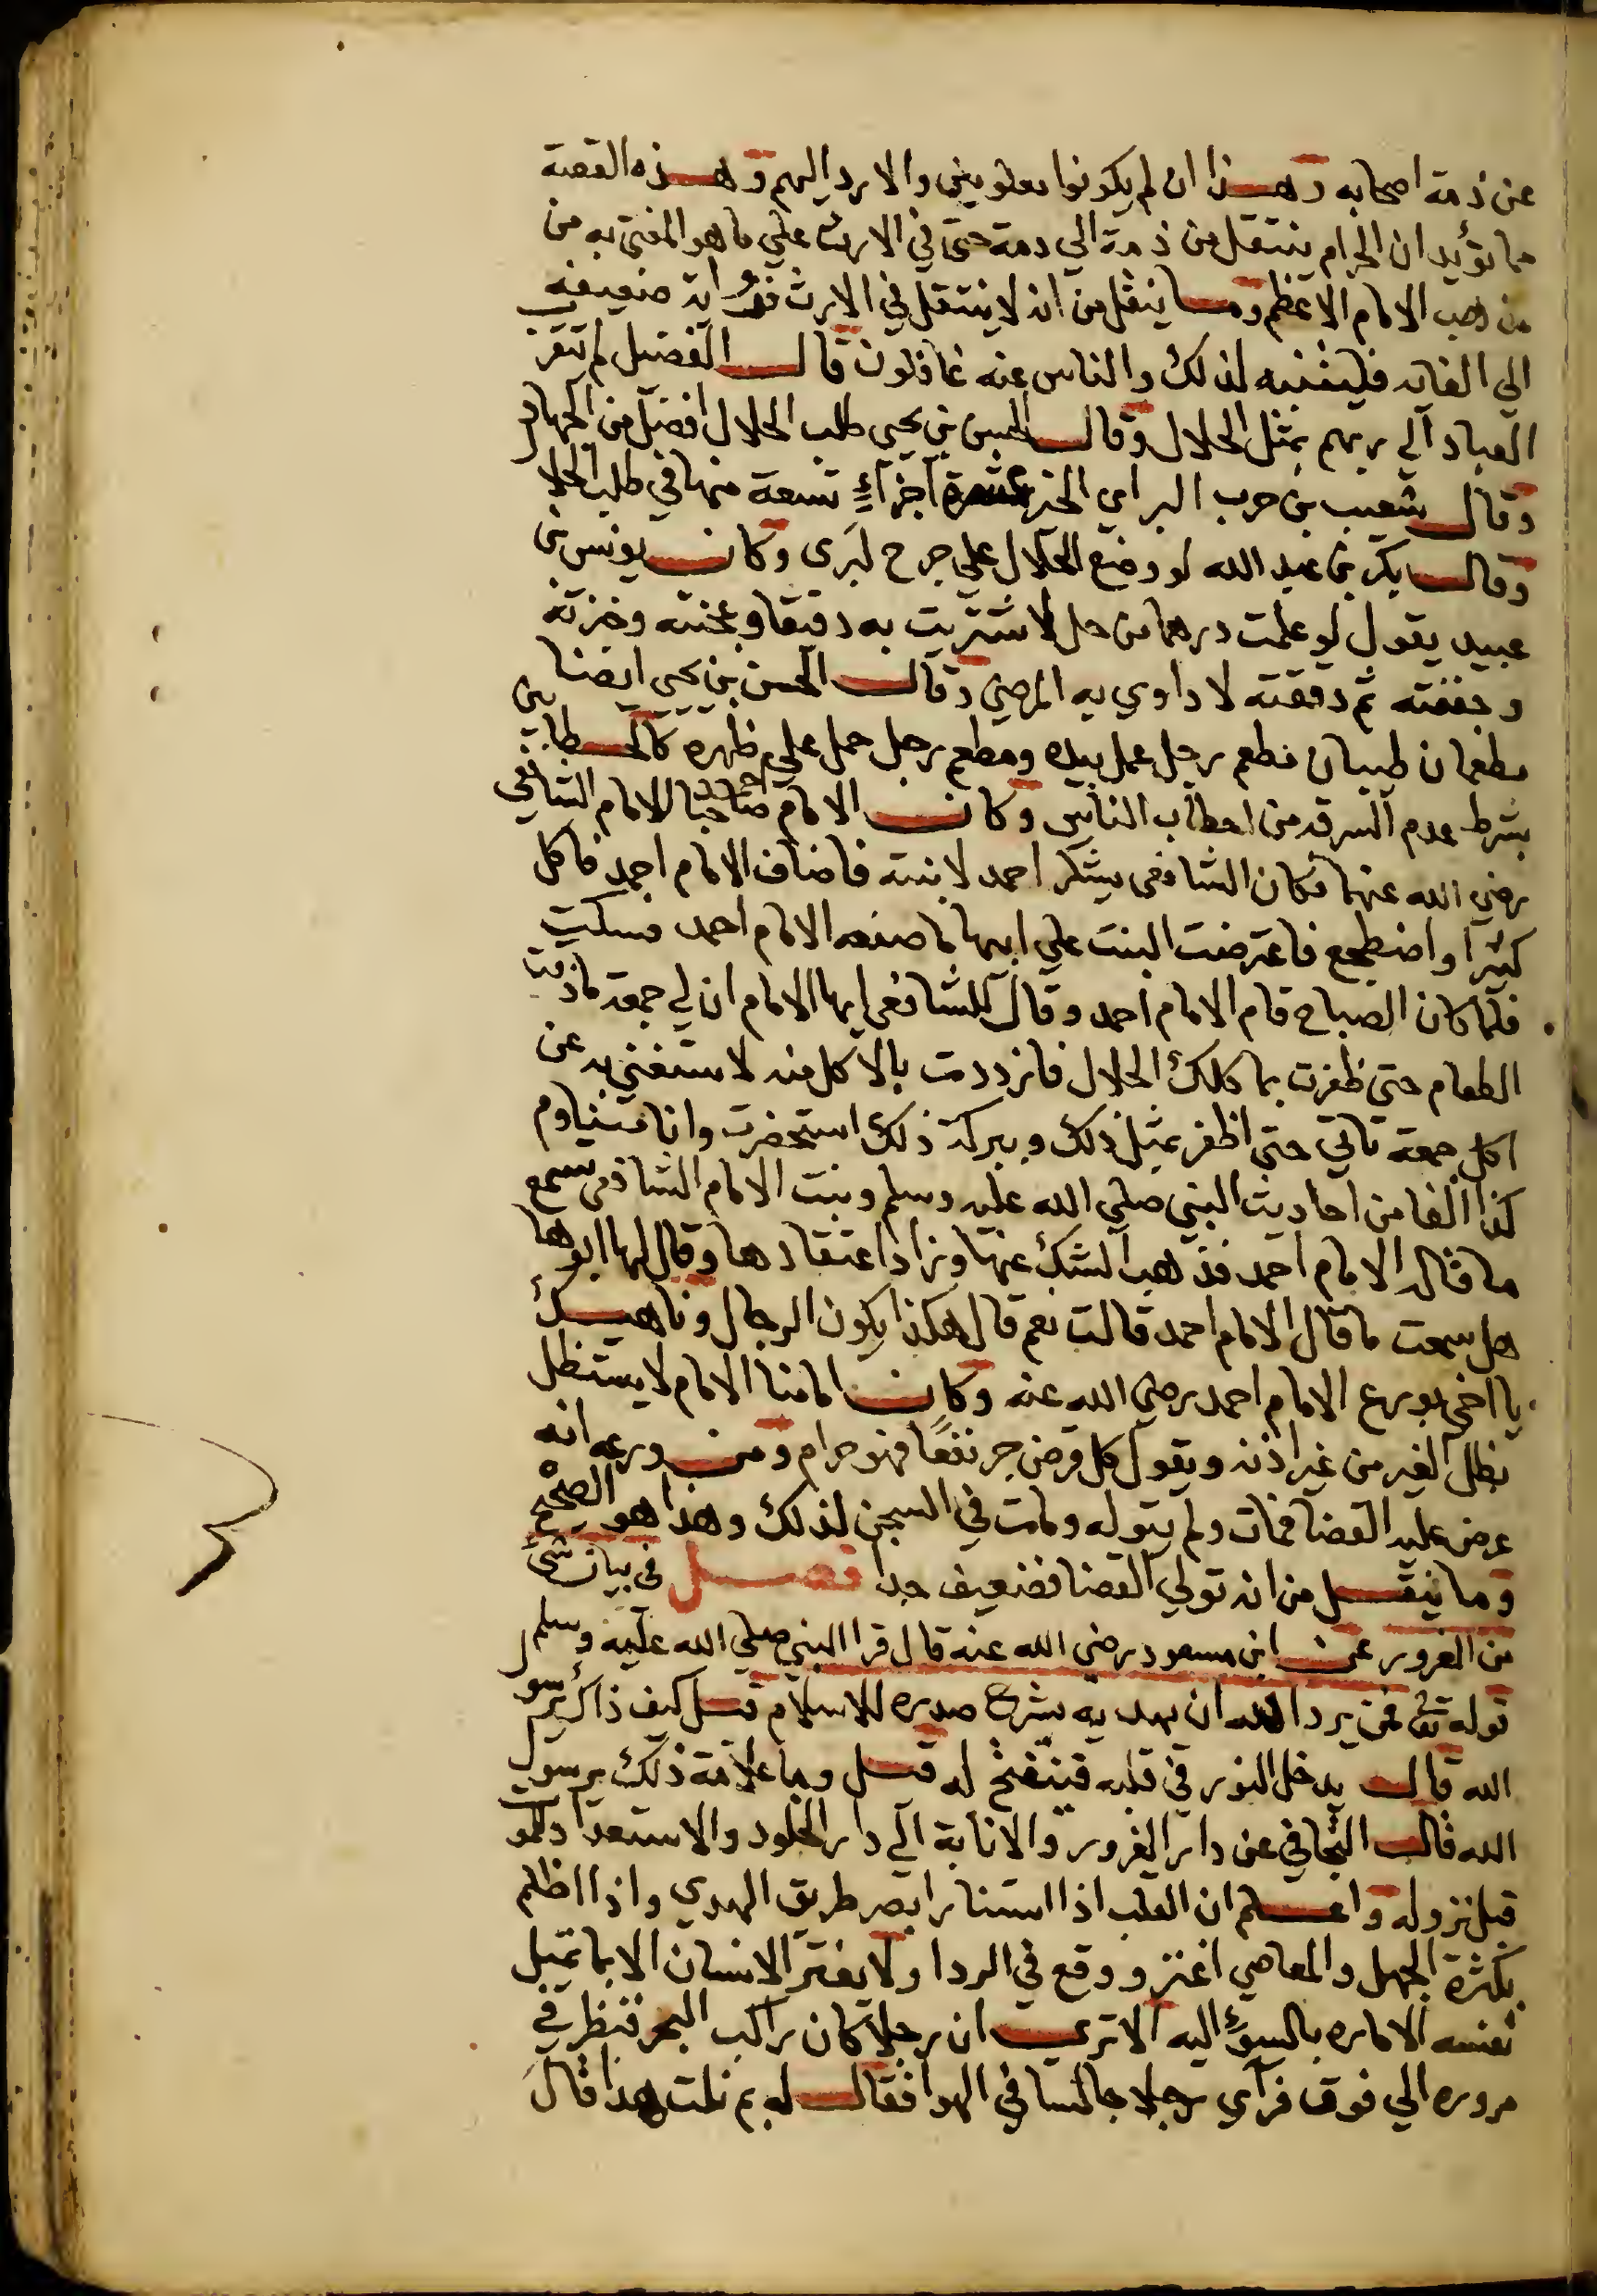 عن ذمة اصحابه وهذا ان لم يكونوا معلومين والا رد اليهم وهذه القصة
مما تؤيد ان الحرام ينتقل من ذمة الي ذمة حتى في الارث علي ما هو المفتى به من
مذهب الامام الاعظم وما ينقل من انه لا ينتقل في الارث فرواية ضعيفه
الي الغاية فليتنبه لذلك والناس عنه غافلون قال الفضيل لم تتقرب
العباد الي ربهم بمثل الحلال وقال الحسن بن يحيى طلب الحلال افضل من الجهاد
وقال شعيب بن حرب البر اي الخير عشرة اجزاء تسعة منها في طلب الحلال
وقال بكر بن عبد الله لو وضع الحلال علي جرح لبرى وكان يونس بن
عبيد يقول لو علمت درهما من حل لاشتريت به دقيقا وعجنته وخبزته
وجففته ثم دققته لاداوي به المرضي وقال الحسن بن يحيى ايضا
مطعمان طيبان مطعم رجل عمل بيده ومطعم رجل حمل علي ظهره كالحطابين
بشرط عدم السرقه من احطاب الناس وكان الامام احمد صاحبا للامام الشافعي
رضي الله عنهما فكان الشافعى يشكر احمد لابنته فاضاف الامام احمد فاكل
كثيرا واضطجع فاعترضت البنت علي ابيها ما صنعه الامام احمد فسكت
فلما كان الصباح قام الامام احمد وقال للشافعى ايها الامام ان لي جمعة ما ذقت
الطعام حتي ظفرت بماكلك الحلال فازددت بالاكل منه لاستغني به عن
اكل جمعة تاتي حتى اظفر بمثل ذلك وببركة ذلك استحضرت وانا متناوم
كذا الفا من احاديث النبي صلي الله عليه وسلم وبنت الامام الشافعى تسمع
ما قاله الامام احمد فذهب الشك عنها وزاد اعتقادها وقال لها ابوها
هل سمعت ما قال الامام احمد قالت نعم قال هكذا يكون الرجال وناهيك
يا اخى بورع الامام احمد رضي الله عنه وكان امامنا الامام لا يستظل
بظل الغير من غير اذنه ويقول كل قرض جر نفعًا فهو حرام ومن ورعه انه
عرض عليه القضا فمات ولم يتوله ومات في السجن لذلك وهذا هو الصحيح
وما ينقل من انه تولي القضا فضعيف جدا فصل في بيان شئ
من الغرور عن ابن مسعود رضى الله عنه قال قرا النبي صلي الله عليه وسلم
قوله تعالى فمن يرد الله ان يهديه يشرح صدره للاسلام قيل كيف ذاك يرسول
الله قال يدخل النور في قلبه فينفتح له قيل وما علامة ذلك يرسول
الله قال التجافي عن دار الغرور والانابة الي دار الخلود والاستعداد للموت
قبل نزوله واعلم ان القلب اذا استنار ابصر طريق الهدي واذا اظلم
بكثرة الجهل والمعاصي اغتر ووقع في الردا ولا يغتر الانسان الا بما تميل
نفسه الاماره بالسوءِ اليه الا ترى ان رجلا كان راكب البحر فنظر في
مروره الي فوق فرآي رجلا جالسا في الهوا فقال له بم نلت هذا قال